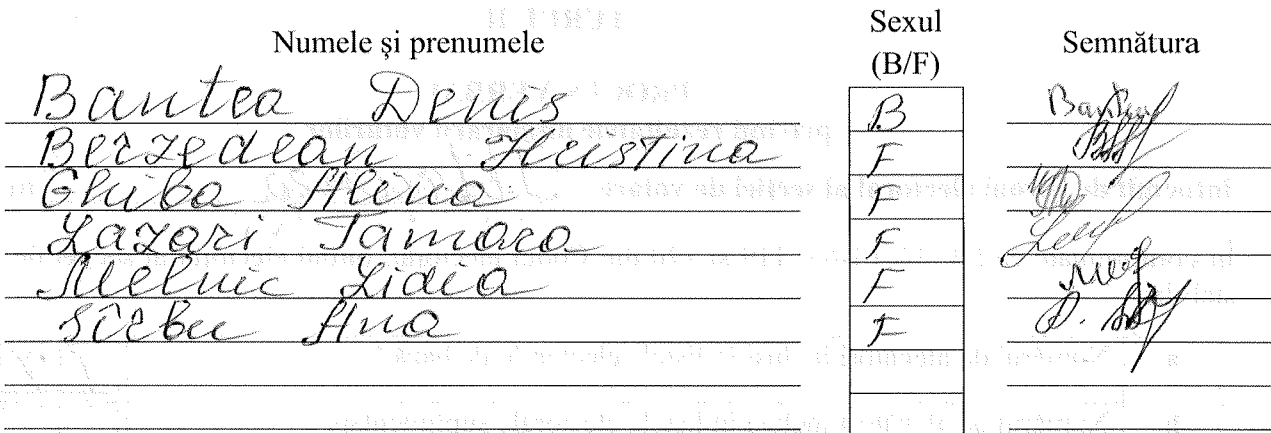 Numele și prenumele Sexul (B/F) Semnătura
Bantea Denis B
Berzedean Hristina F
Ghiba Alina F
Lazari Tamara F
Melnic Lidia F
Sîrbu Ana F